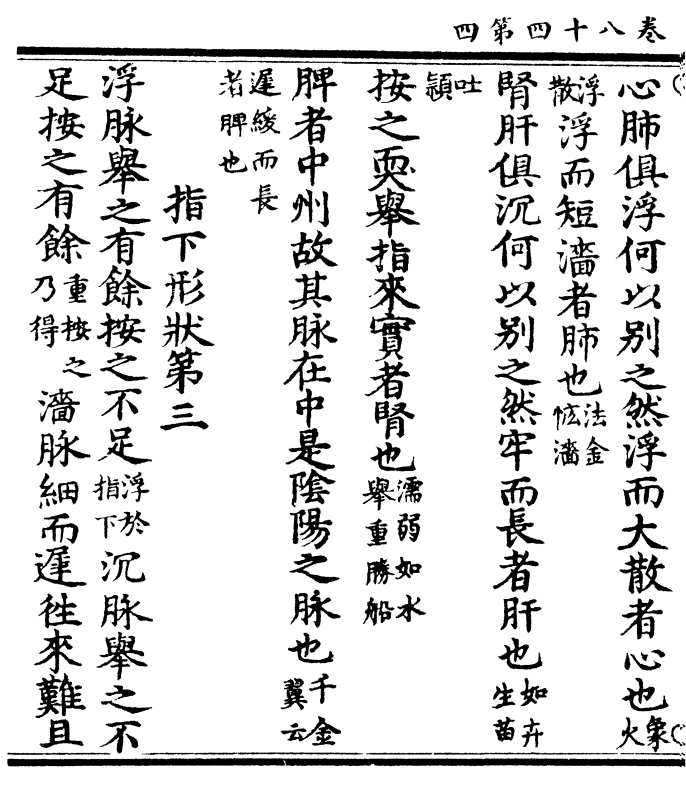 卷八十四第四
心肺俱浮何以别之然浮而大散者心也象火
浮散浮而短濇者肺也法金濇
腎肝俱沉何以别之然牢而長者肝也如卉生苗
吐頴
按之耎舉指來實者腎也濡弱如水舉重勝船
脾者中州故其脉在中是隂陽之脉也千金翼云
遲緩而長者脾也
指下形狀第三
浮脉舉之有餘按之不足浮於指下沉脉舉之不
足按之有餘重按之乃得濇脉細而遲徃來難且